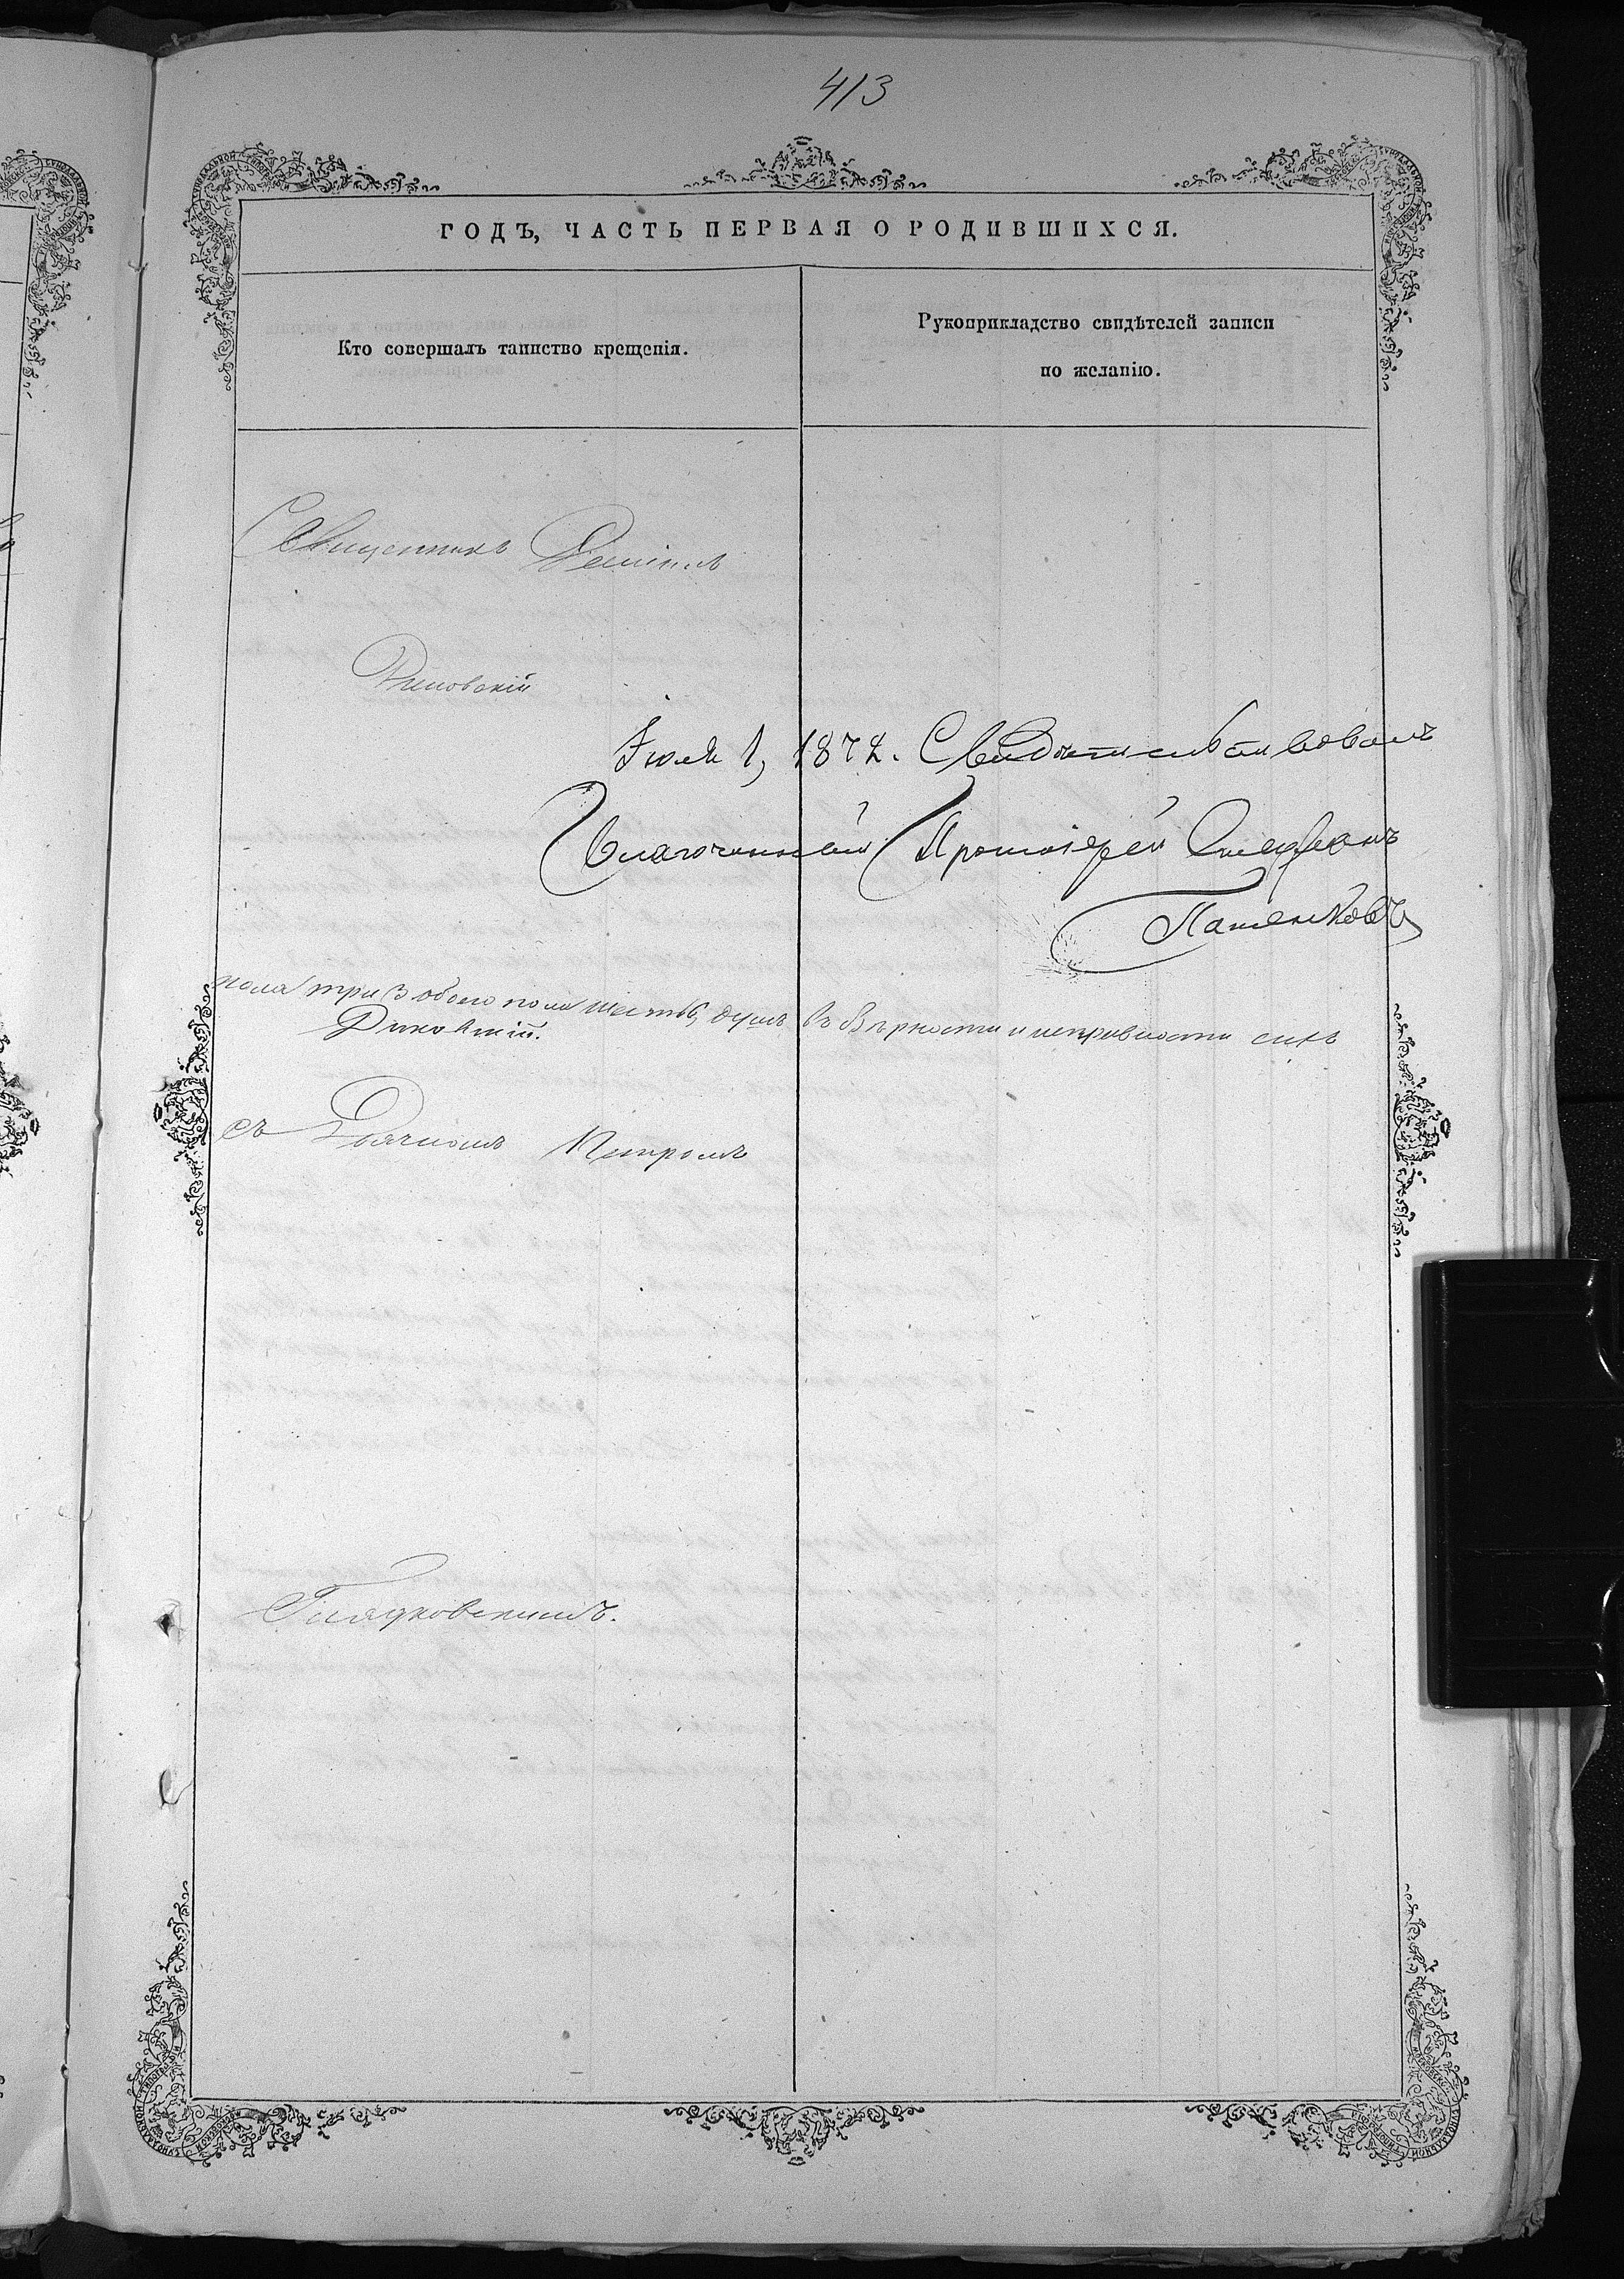 413
ГОДЪ, ЧАСТЬ ПЕРВАЯ О РОДИВШИХСЯ.
Кто совершалъ таинство крещенія.
Рукоприкладство свидѣтелей записи
по желанію.
Священникъ
Диковскій
Іюля 1, 1872. Свидѣтельствовалъ
Благочинный Протоіерей Стефанъ
пола три 3 обоего пола шесть 6, душъ въ вѣрности и исправности сихъ
Диковскій.
съ Дьячкомъ Петромъ
Гладковскимъ.